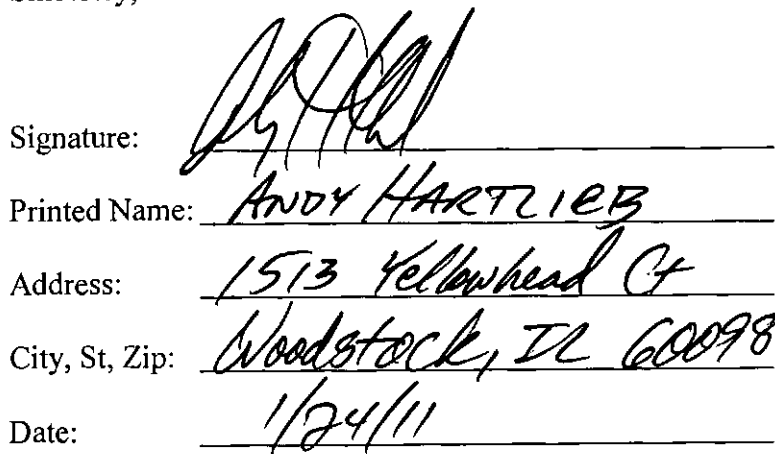 Signature:
Printed Name: ANDY HARTLIEB
Address: 1513 Yellowhead Ct
City, St, Zip: Woodstock, IL 60098
Date: 1/24/11